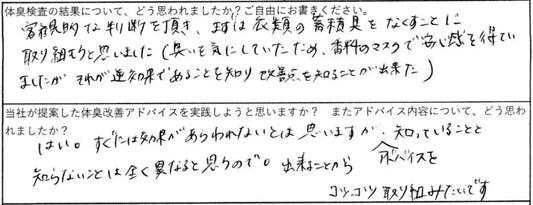 体臭検査の結果について、どう思われましたか?ご自由にお書きください。
客観的な判断を頂き、まずは衣類の蓄積臭をなくすことに
取り組もうと思いました(臭いを気にしていたため、香料のマスクで安心感を得てい
ましたが それが逆効果であることを知り 改善点を知ることが出来た)
当社が提案した体臭改善アドバイスを実践しようと思いますか? またアドバイス内容について、どう思わ
れましたか?
はい。すぐには効果があらわれないとは思いますが、知っていることと
知らないことは全く異なると思うので。出来ることから アドバイスを
コツコツ取り組みたいです